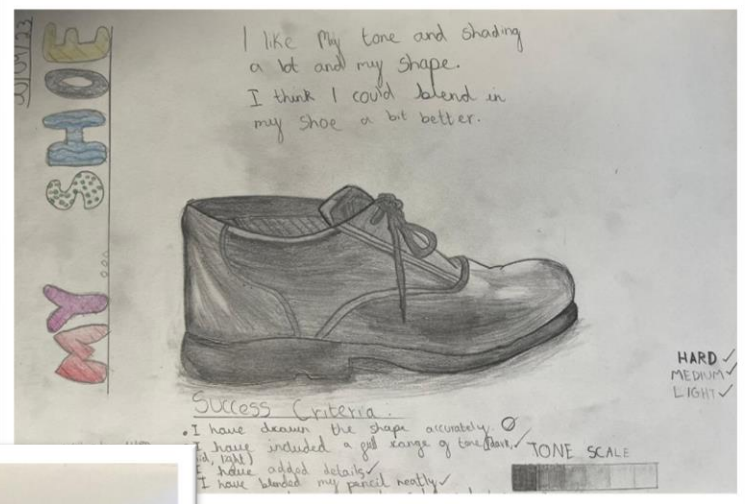 MY SHOE
I like My tone and shading
a lot and my shape.
I think I could blend in
my shoe a bit better.
HARD ✓
MEDIUM ✓
LIGHT ✓
Success Criteria.
• I have drawn the shape accurately.
I have included a full range of tone (dark, ✓
mid, light)
I have added details ✓
I have blended my pencil neatly ✓
TONE SCALE